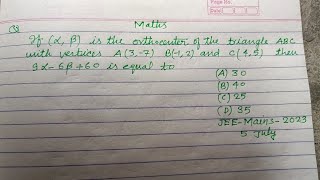 Page No.
Date
Maths
Q If (α, β) is the orthocenter of the triangle ABC
with vertices A(3,-7) B(-1,2) and C(4,5) then
9α-6β+60 is equal to
(A) 30
(B) 40
(C) 25
(D) 35
JEE-Mains-2023
5 July